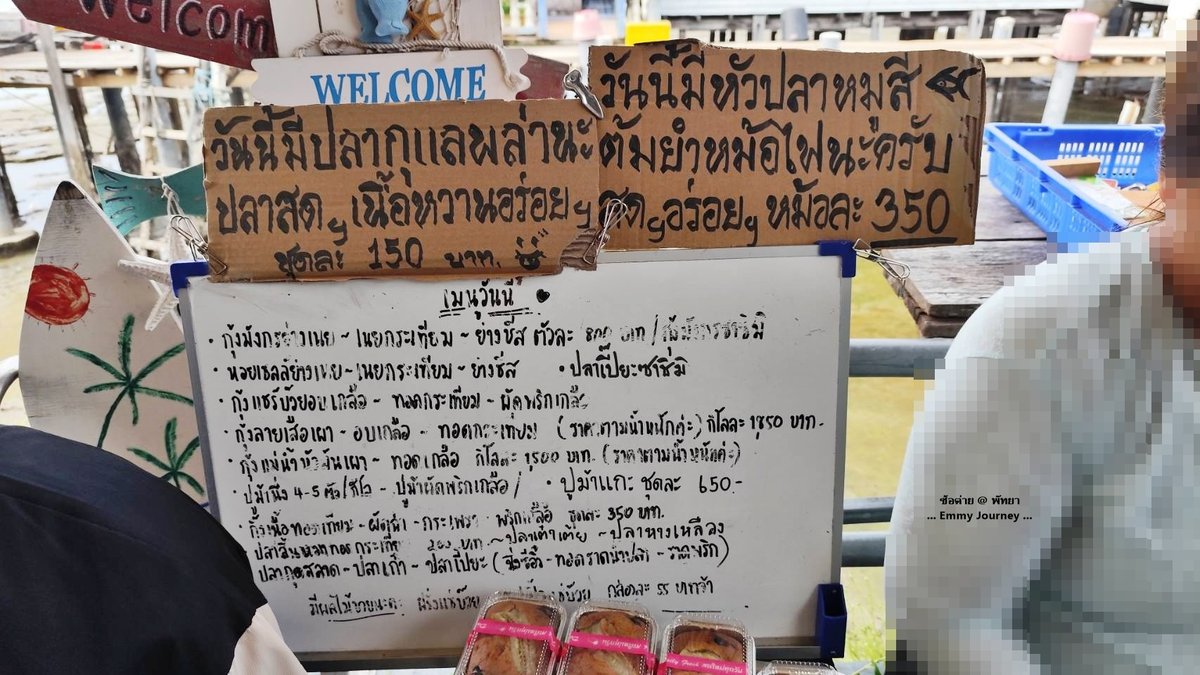 Welcom
WELCOME
วันนี้มีปลากุแลพล่านะ
ปลาสดๆเนื้อหวานอร่อยๆ
ชุดละ 150 บาท.
วันนี้มีหัวปลาหมูสี
ต้มยำหม้อไฟนะครับ
สดๆอร่อยๆ หม้อละ 350
เมนูวันนี้
• กุ้งมังกรย่างเนย - เนยกระเทียม - ย่างชีส ตัวละ 800 บาท / กุ้งมังกรซาชิมิ
• หอยเชลล์ย่างเนย - เนยกระเทียม - ย่างชีส • ปลาเปี๊ยะซาชิมิ
• กุ้งแชร์บ๊วยอบเกลือ - ทอดกระเทียม - ผัดพริกเกลือ
• กุ้งลายเสือเผา - อบเกลือ - ทอดกระเทียม (ราคาตามน้ำหนักค่ะ) กิโลละ 1,850 บาท.
• กุ้งแม่น้ำหัวมันเผา - ทอดเกลือ กิโลละ 1,500 บาท. (ราคาตามน้ำหนักค่ะ)
• ปูม้านึ่ง 4-5 ตัว/กิโล - ปูม้าผัดพริกเกลือ / • ปูม้าแกะ ชุดละ 650.-
กุ้งเนื้อทอดกระเทียม - ผัดฉ่า - กระเพรา - พริกเกลือ ชุดละ 350 บาท.
ทอดกระเทียม 200 บาท ~ ปลาเต๋าเต้ย - ปลาหางเหลือง
ปลากุดสลาด - ปลาเก๋า - ปลาเปี๊ยะ (นึ่งซีอิ๊ว - ทอดราดน้ำปลา - ราดพริก)
มีผลไม้ขายนะคะ ฝรั่งแช่บ๊วย กล่องละ 55 บาทจ้า
ซ้อต่าย @ พัทยา
... Emmy Journey ...